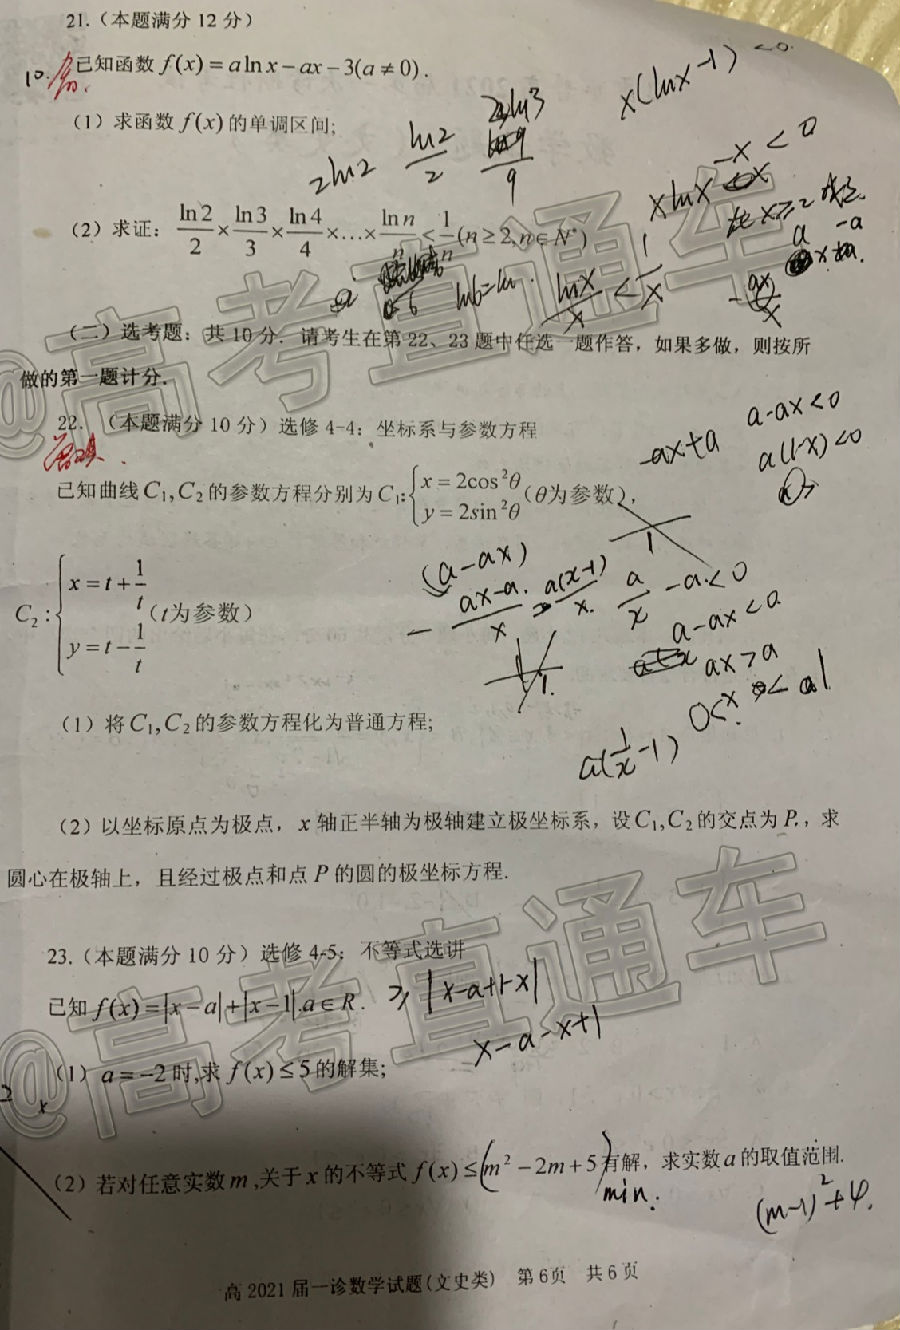 21.（本题满分12分）
已知函数 f(x) = a ln x − ax − 3(a ≠ 0).
10.
（1）求函数 f(x) 的单调区间;
x(lnx−1) <0.
2ln2 ln2/2 2ln3 9
−x < 0
（2）求证: ln2/2 × ln3/3 × ln4/4 ×…× lnn/n < 1/n (n ≥ 2, n ∈ N*)
xlnx
lnx/x < 1/x
（二）选考题: 共10分. 请考生在第22、23题中任选一题作答，如果多做，则按所
做的第一题计分.
22.（本题满分10分）选修4-4: 坐标系与参数方程
−ax+a a−ax<0
a(1−x)<0
已知曲线 C₁, C₂ 的参数方程分别为 C₁: { x = 2cos²θ y = 2sin²θ (θ为参数),
C₂: { x = t + 1/t y = t − 1/t (t为参数)
(a−ax)
− ax−a/x a(x−1)/x. a/x −a<0
a−ax<0
ax>a
a(1/x −1)
（1）将 C₁, C₂ 的参数方程化为普通方程;
（2）以坐标原点为极点，x 轴正半轴为极轴建立极坐标系，设 C₁, C₂ 的交点为 P.，求
圆心在极轴上，且经过极点和点 P 的圆的极坐标方程.
23.（本题满分10分）选修4-5: 不等式选讲
已知 f(x) = |x − a| + |x − 1|.a ∈ R. ≥ |x−a+1−x|
x−a−x+1
（1）a = −2 时,求 f(x) ≤ 5 的解集;
（2）若对任意实数 m ,关于 x 的不等式 f(x) ≤ (m² − 2m + 5) 有解，求实数 a 的取值范围.
min.
(m−1)²+4.
高2021届一诊数学试题(文史类) 第6页 共6页
@高考直通车
@高考直通车